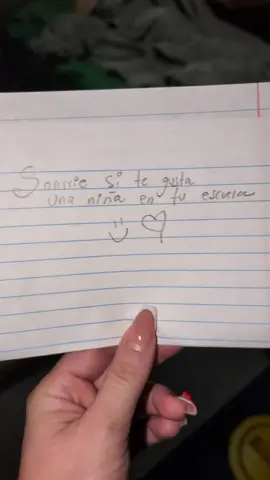 Sonrrie si te gusta
una niña en tu escuela